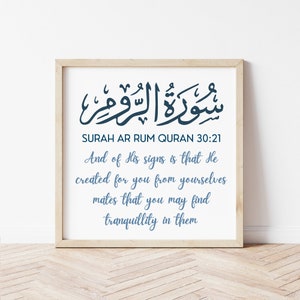 سُورَةُ الرُّومِ
SURAH AR RUM QURAN 30:21
And of His signs is that He
created for you from yourselves
mates that you may find
tranquillity in them